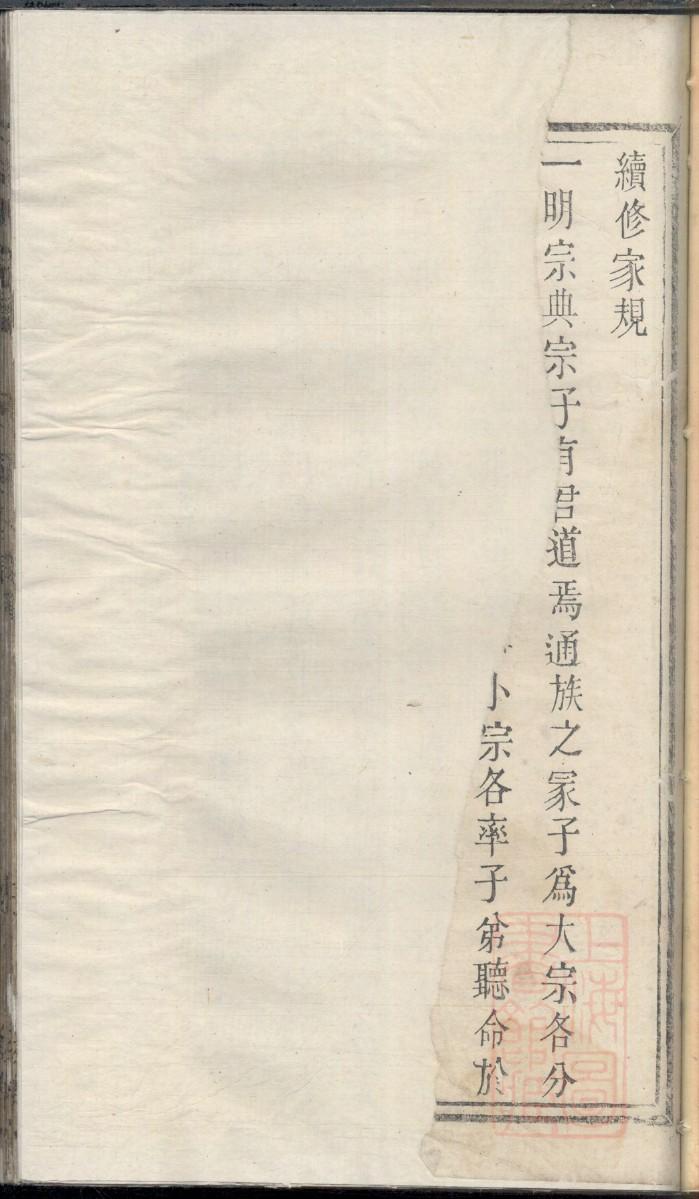 續修家規
一明宗典宗子有君道焉通族之冡子爲大宗各分
小宗各率子弟聽命於
上海圖書館藏